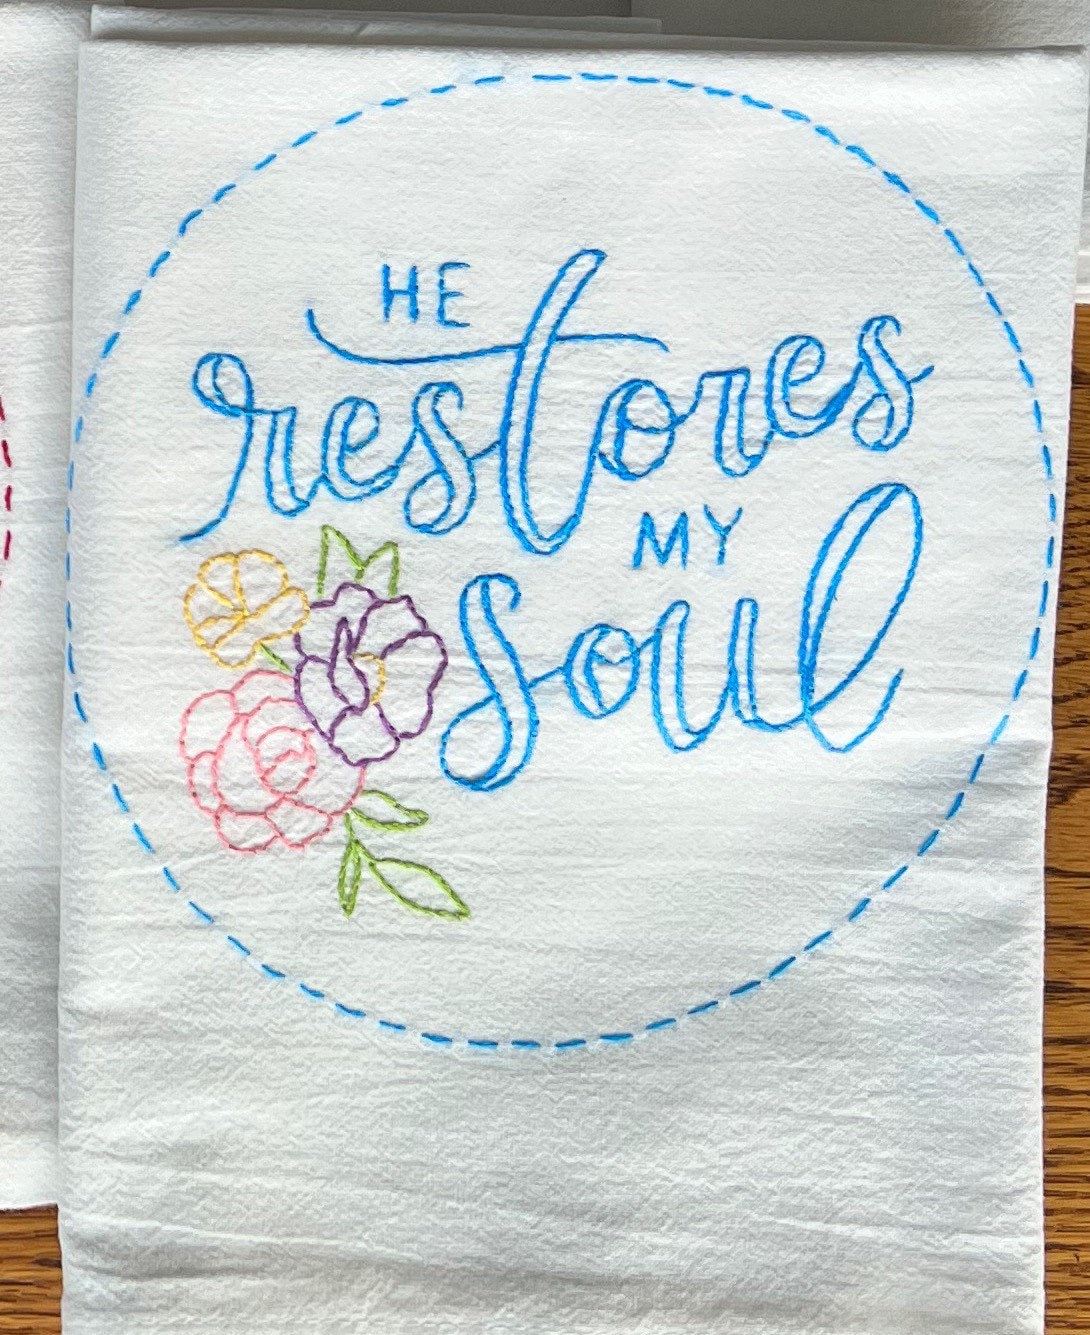 HE
restores
MY
soul